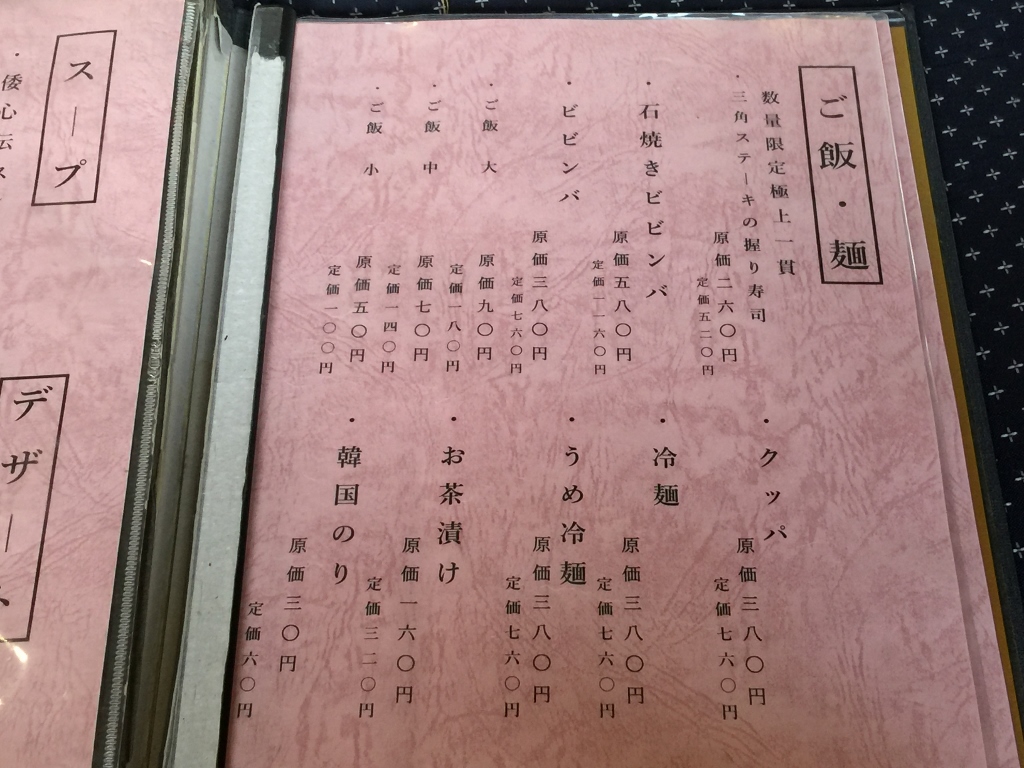 ご飯・麺
数量限定極上一貫
・三角ステーキの握り寿司
原価二六〇円
定価五二〇円
・石焼きビビンバ
原価五八〇円
定価一一六〇円
・ビビンバ
原価三八〇円
定価七六〇円
・ご飯 大
原価九〇円
定価一八〇円
・ご飯 中
原価七〇円
定価一四〇円
・ご飯 小
原価五〇円
定価一〇〇円
・クッパ
原価三八〇円
定価七六〇円
・冷麺
原価三八〇円
定価七六〇円
・うめ冷麺
原価三八〇円
定価七六〇円
・お茶漬け
原価一六〇円
定価三二〇円
・韓国のり
原価三〇円
定価六〇円
スープ
・倭心伝ス
デザー